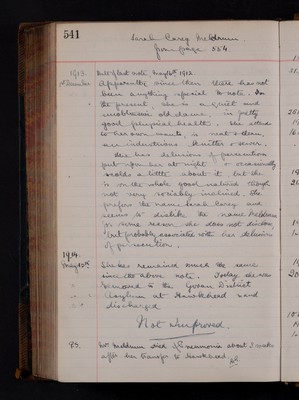 541
Sarah Carey Meldrum.
from page 554
1913. Date of last note, May 16th 1912
December Apparently since then there has not
been anything special to note. In
the present, she is a quiet and
old dame, in pretty
good physical health. She attends
to her own wants, is neat & clean,
and industrious. Knitter & sewer.
She has delusions of persecution,
at night & occasionally
scolds a little about it, but she
is on the whole good natured though
not very sociably inclined, she
prefers the name Sarah Carey and
seems to dislike the name Meldrum
for some reason she does not disclose,
but probably associated with her delusions
of persecution.
1914.
May 12th She has remained much the same
since the above note. Today she was
removed to the Govan District
Asylum at Hawkhead and
discharged
Not Improved.
PS. Mrs Meldrum died of Pneumonia about 3 weeks
after her transfer to Hawkhead.